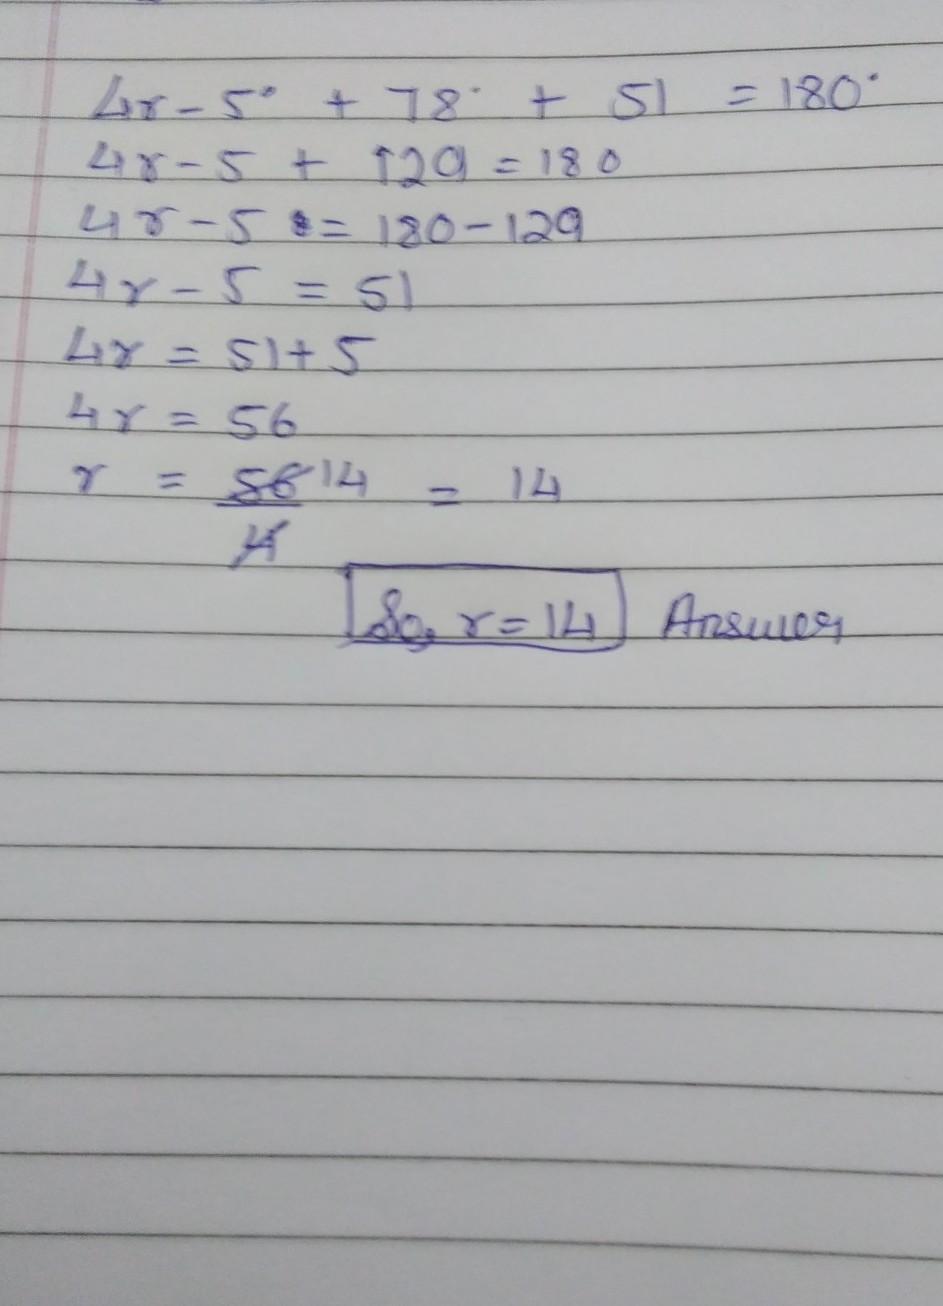 4r - 5° + 78° + 51 = 180°
4r - 5 + 129 = 180
4r - 5 = 180 - 129
4r - 5 = 51
4r = 51 + 5
4r = 56
r = 56/4 14 = 14
So, r = 14 Answer